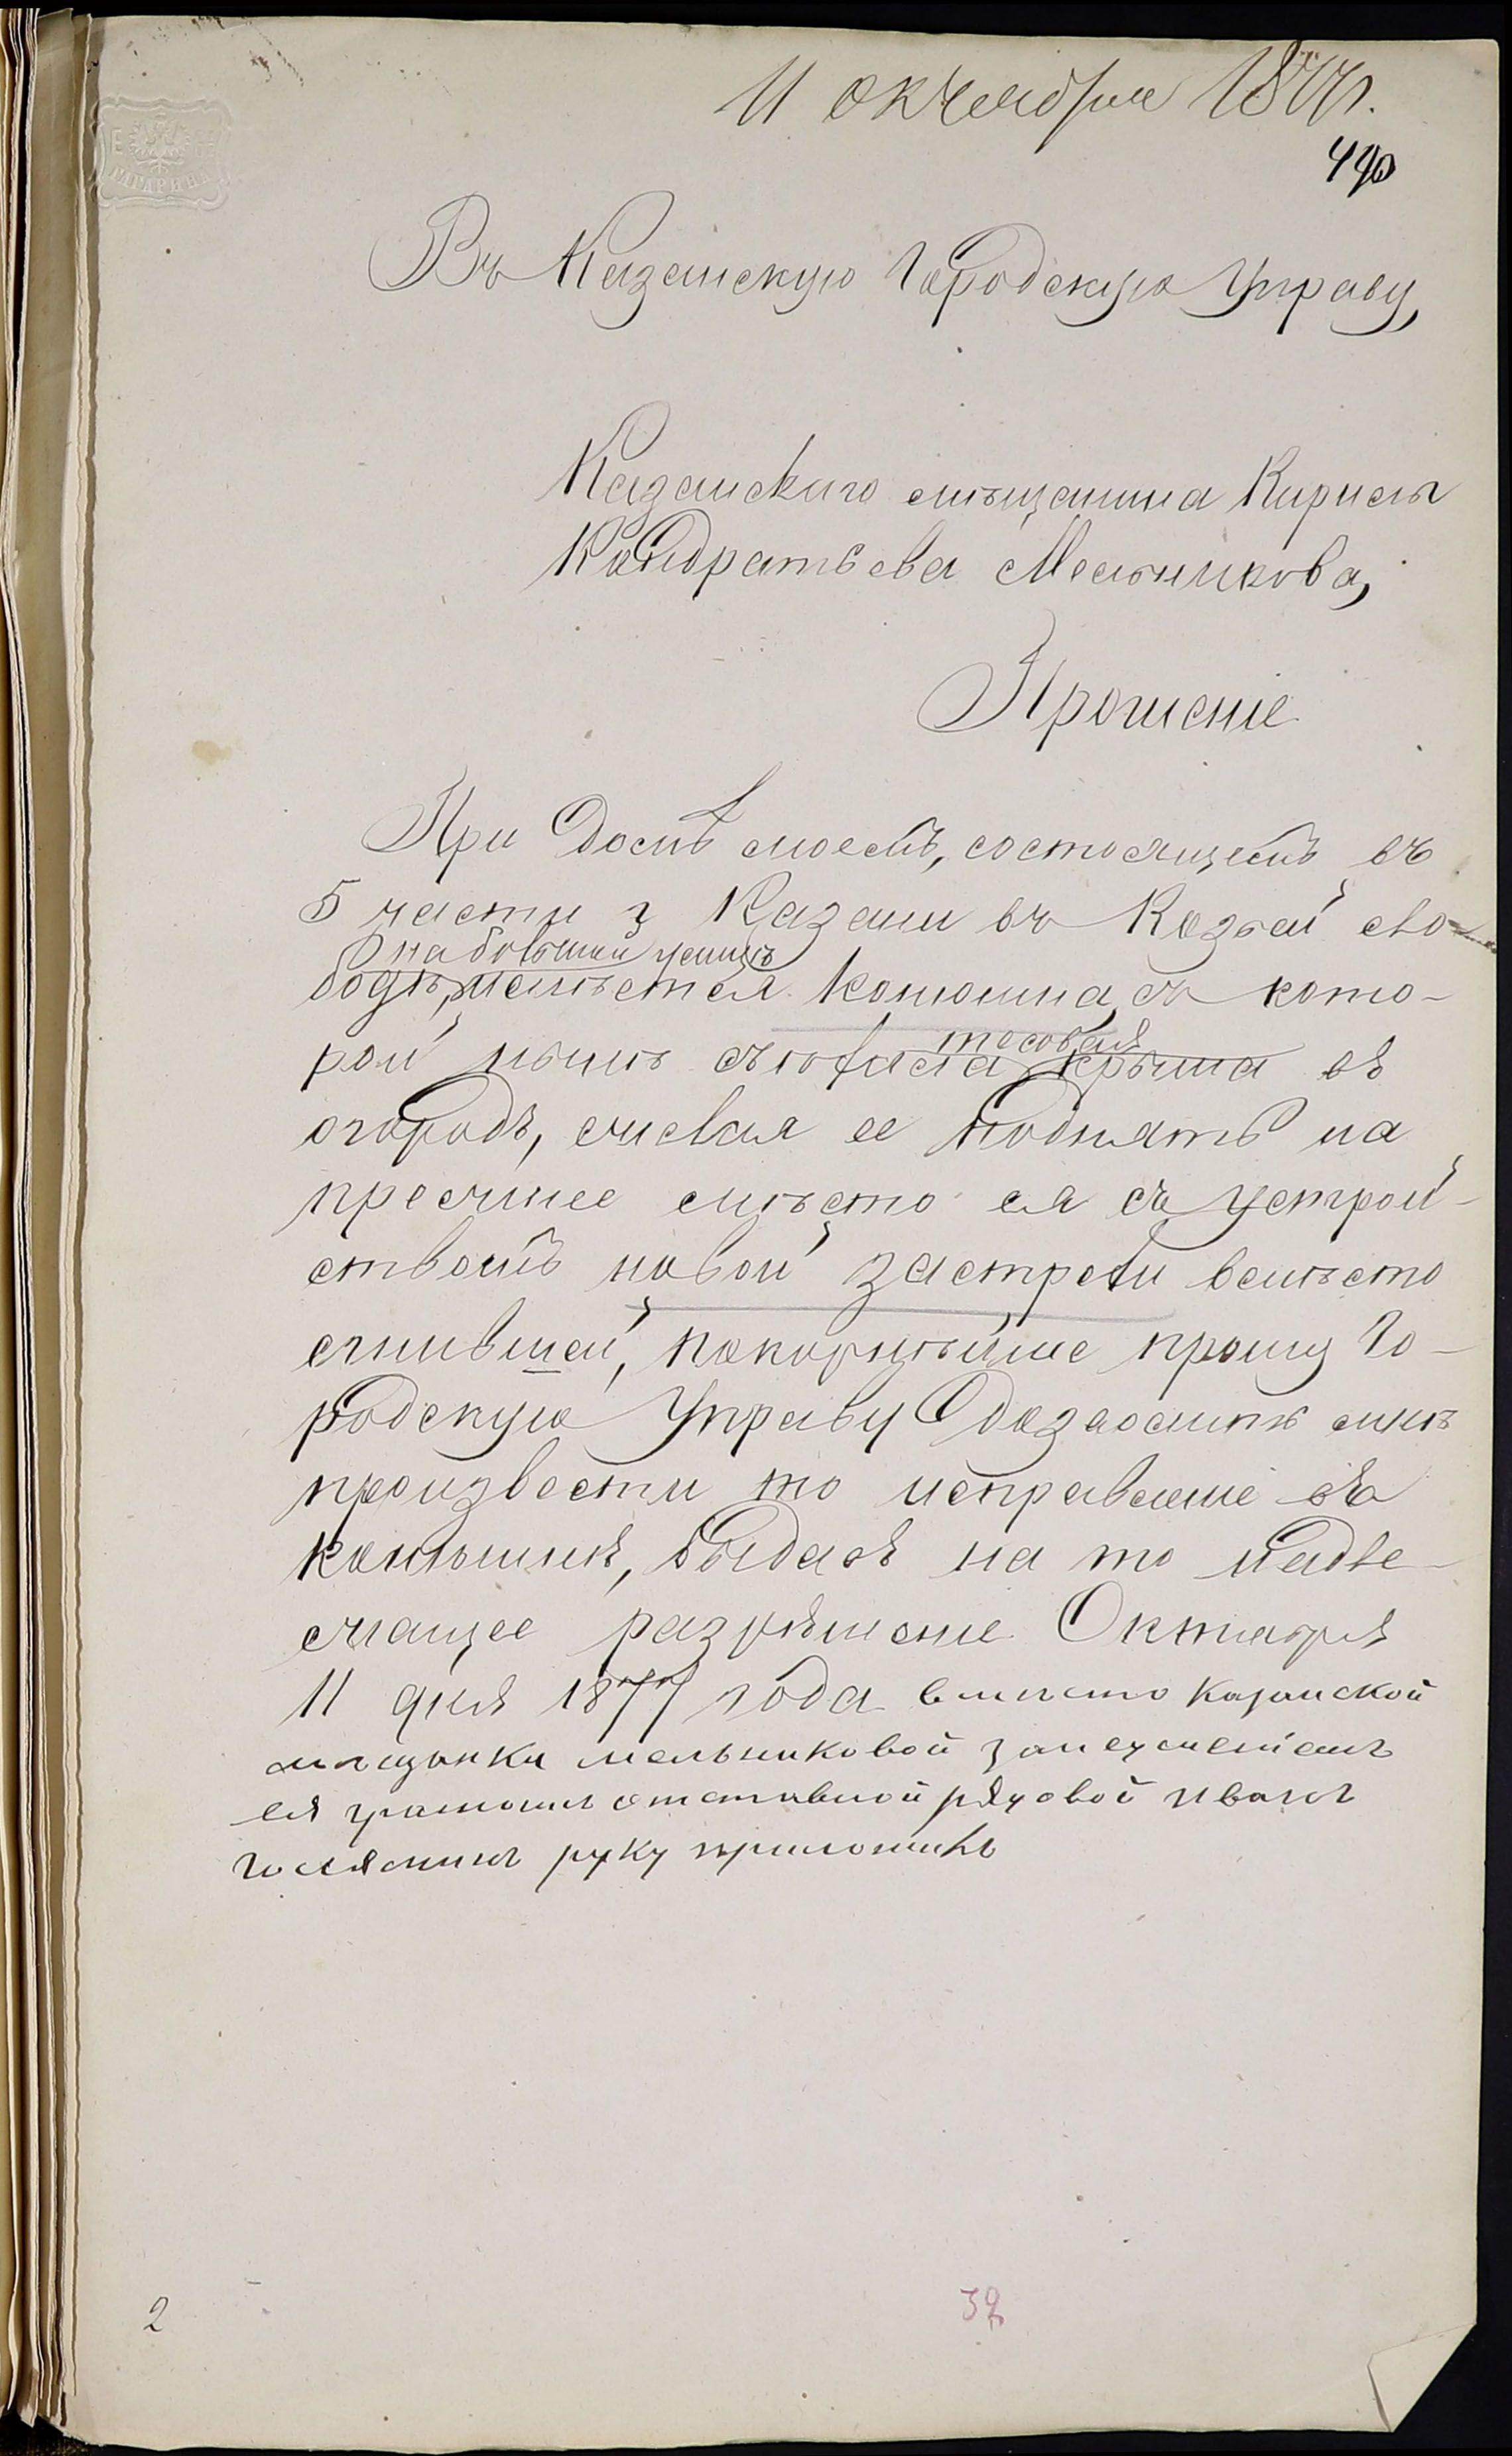 11 октября 1877 г.
490
Въ Казанскую Городскую Управу,
Казанскаго мѣщанина Кирилы
Кондратьева Мельникова,
Прошеніе
При домѣ моемъ, состоящемъ въ
5 части г Казани въ Козьей сло-
на большой улицѣ
бодѣ, имѣется конюшна, съ кото-
тесовая
рой нынѣ съ крыша въ
огородъ, желая ее поднять на
прежнее мѣсто ея съ устрой-
ствомъ новой застрехи вмѣсто
сгнившей, покорнѣйше прошу Го-
родскую Управу дозволить мнѣ
произвести то исправленіе въ
конюшнѣ, выдавъ на то надле-
жащее разрѣшеніе Октября
11 дня 1877 года вместо казанской
мѣщанки мельниковой за неуменіемъ
ея грамоте отставной рядовой иванъ
руку приложилъ
2
32